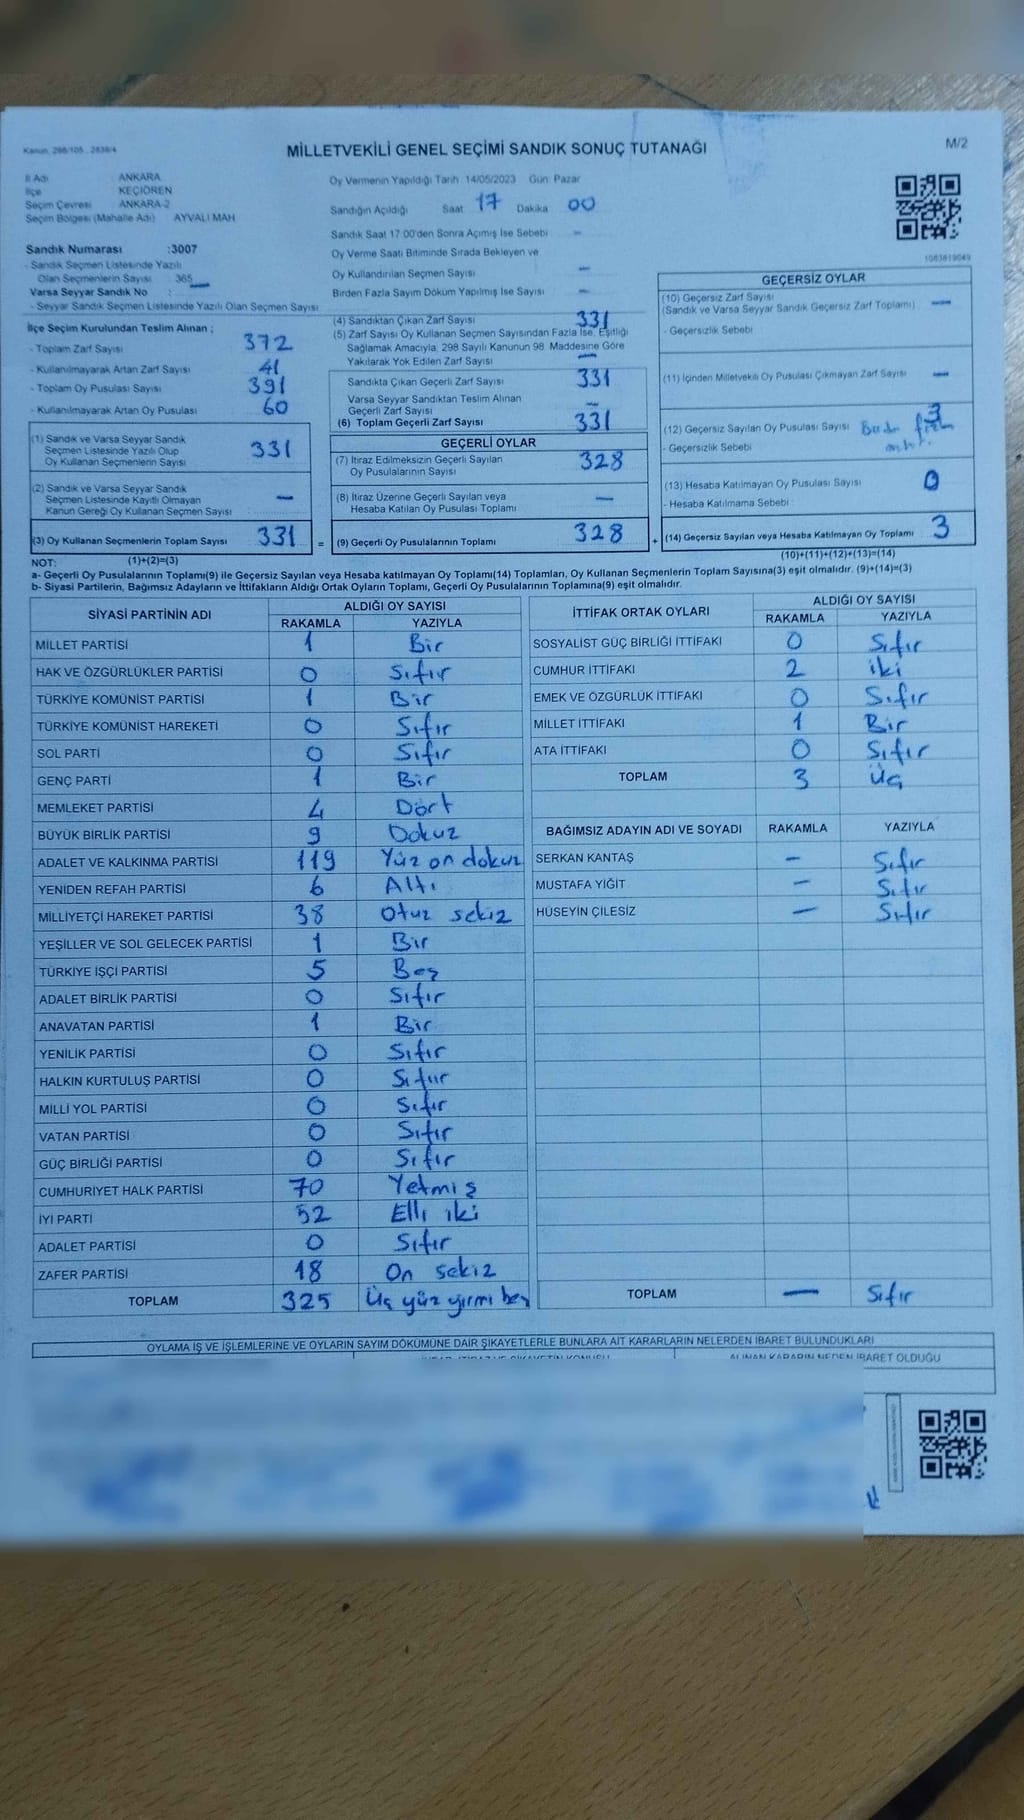 Kanun, 298/105, 2839/4
MİLLETVEKİLİ GENEL SEÇİMİ SANDIK SONUÇ TUTANAĞI
M/2
İl Adı : ANKARA
İlçe : KEÇİÖREN
Seçim Çevresi : ANKARA-2
Seçim Bölgesi (Mahalle Adı) AYVALI MAH
Sandık Numarası :3007
- Sandık Seçmen Listesinde Yazılı
Olan Seçmenlerin Sayısı : 365
Varsa Seyyar Sandık No : —
- Seyyar Sandık Seçmen Listesinde Yazılı Olan Seçmen Sayısı
Oy Vermenin Yapıldığı Tarih 14/05/2023 Gün: Pazar
Sandığın Açıldığı Saat 17 Dakika 00
Sandık Saat 17:00'den Sonra Açılmış İse Sebebi —
Oy Verme Saati Bitiminde Sırada Bekleyen ve
Oy Kullandırılan Seçmen Sayısı —
Birden Fazla Sayım Döküm Yapılmış İse Sayısı —
1083819049
İlçe Seçim Kurulundan Teslim Alınan ;
- Toplam Zarf Sayısı 372
- Kullanılmayarak Artan Zarf Sayısı 41
- Toplam Oy Pusulası Sayısı 391
- Kullanılmayarak Artan Oy Pusulası 60
(1) Sandık ve Varsa Seyyar Sandık
Seçmen Listesinde Yazılı Olup
Oy Kullanan Seçmenlerin Sayısı 331
(2) Sandık ve Varsa Seyyar Sandık
Seçmen Listesinde Kayıtlı Olmayan
Kanun Gereği Oy Kullanan Seçmen Sayısı —
(3) Oy Kullanan Seçmenlerin Toplam Sayısı 331 =
(1)+(2)=(3)
(4) Sandıktan Çıkan Zarf Sayısı 331
(5) Zarf Sayısı Oy Kullanan Seçmen Sayısından Fazla İse, Eşitliği
Sağlamak Amacıyla, 298 Sayılı Kanunun 98. Maddesine Göre
Yakılarak Yok Edilen Zarf Sayısı —
Sandıkta Çıkan Geçerli Zarf Sayısı 331
Varsa Seyyar Sandıktan Teslim Alınan
Geçerli Zarf Sayısı —
(6) Toplam Geçerli Zarf Sayısı 331
GEÇERLİ OYLAR
(7) İtiraz Edilmeksizin Geçerli Sayılan
Oy Pusulalarının Sayısı 328
(8) İtiraz Üzerine Geçerli Sayılan veya
Hesaba Katılan Oy Pusulası Toplamı —
(9) Geçerli Oy Pusulalarının Toplamı 328 +
GEÇERSİZ OYLAR
(10) Geçersiz Zarf Sayısı —
(Sandık ve Varsa Seyyar Sandık Geçersiz Zarf Toplamı)
- Geçersizlik Sebebi
(11) İçinden Milletvekili Oy Pusulası Çıkmayan Zarf Sayısı —
(12) Geçersiz Sayılan Oy Pusulası Sayısı 3
- Geçersizlik Sebebi
(13) Hesaba Katılmayan Oy Pusulası Sayısı 0
- Hesaba Katılmama Sebebi :
(14) Geçersiz Sayılan veya Hesaba Katılmayan Oy Toplamı 3
(10)+(11)+(12)+(13)=(14)
NOT:
a- Geçerli Oy Pusulalarının Toplamı(9) ile Geçersiz Sayılan veya Hesaba katılmayan Oy Toplamı(14) Toplamları, Oy Kullanan Seçmenlerin Toplam Sayısına(3) eşit olmalıdır. (9)+(14)=(3)
b- Siyasi Partilerin, Bağımsız Adayların ve İttifakların Aldığı Ortak Oyların Toplamı, Geçerli Oy Pusulalarının Toplamına(9) eşit olmalıdır.
SİYASİ PARTİNİN ADI ALDIĞI OY SAYISI
RAKAMLA YAZIYLA
MİLLET PARTİSİ 1 Bir
HAK VE ÖZGÜRLÜKLER PARTİSİ 0 Sıfır
TÜRKİYE KOMÜNİST PARTİSİ 1 Bir
TÜRKİYE KOMÜNİST HAREKETİ 0 Sıfır
SOL PARTİ 0 Sıfır
GENÇ PARTİ 1 Bir
MEMLEKET PARTİSİ 4 Dört
BÜYÜK BİRLİK PARTİSİ 9 Dokuz
ADALET VE KALKINMA PARTİSİ 119 Yüz on dokuz
YENİDEN REFAH PARTİSİ 6 Altı
MİLLİYETÇİ HAREKET PARTİSİ 38 Otuz sekiz
YEŞİLLER VE SOL GELECEK PARTİSİ 1 Bir
TÜRKİYE İŞÇİ PARTİSİ 5 Beş
ADALET BİRLİK PARTİSİ 0 Sıfır
ANAVATAN PARTİSİ 1 Bir
YENİLİK PARTİSİ 0 Sıfır
HALKIN KURTULUŞ PARTİSİ 0 Sıfır
MİLLİ YOL PARTİSİ 0 Sıfır
VATAN PARTİSİ 0 Sıfır
GÜÇ BİRLİĞİ PARTİSİ 0 Sıfır
CUMHURİYET HALK PARTİSİ 70 Yetmiş
İYİ PARTİ 52 Elli iki
ADALET PARTİSİ 0 Sıfır
ZAFER PARTİSİ 18 On sekiz
TOPLAM 325 Üç yüz yirmi beş
İTTİFAK ORTAK OYLARI ALDIĞI OY SAYISI
RAKAMLA YAZIYLA
SOSYALİST GÜÇ BİRLİĞİ İTTİFAKI 0 Sıfır
CUMHUR İTTİFAKI 2 iki
EMEK VE ÖZGÜRLÜK İTTİFAKI 0 Sıfır
MİLLET İTTİFAKI 1 Bir
ATA İTTİFAKI 0 Sıfır
TOPLAM 3 Üç
BAĞIMSIZ ADAYIN ADI VE SOYADI RAKAMLA YAZIYLA
SERKAN KANTAŞ — Sıfır
MUSTAFA YİĞİT — Sıfır
HÜSEYİN ÇİLESİZ — Sıfır
TOPLAM — Sıfır
OYLAMA İŞ VE İŞLEMLERİNE VE OYLARIN SAYIM DÖKÜMÜNE DAİR ŞİKAYETLERLE BUNLARA AİT KARARLARIN NELERDEN İBARET BULUNDUKLARI
ALINAN KARARIN NEDEN İBARET OLDUĞU